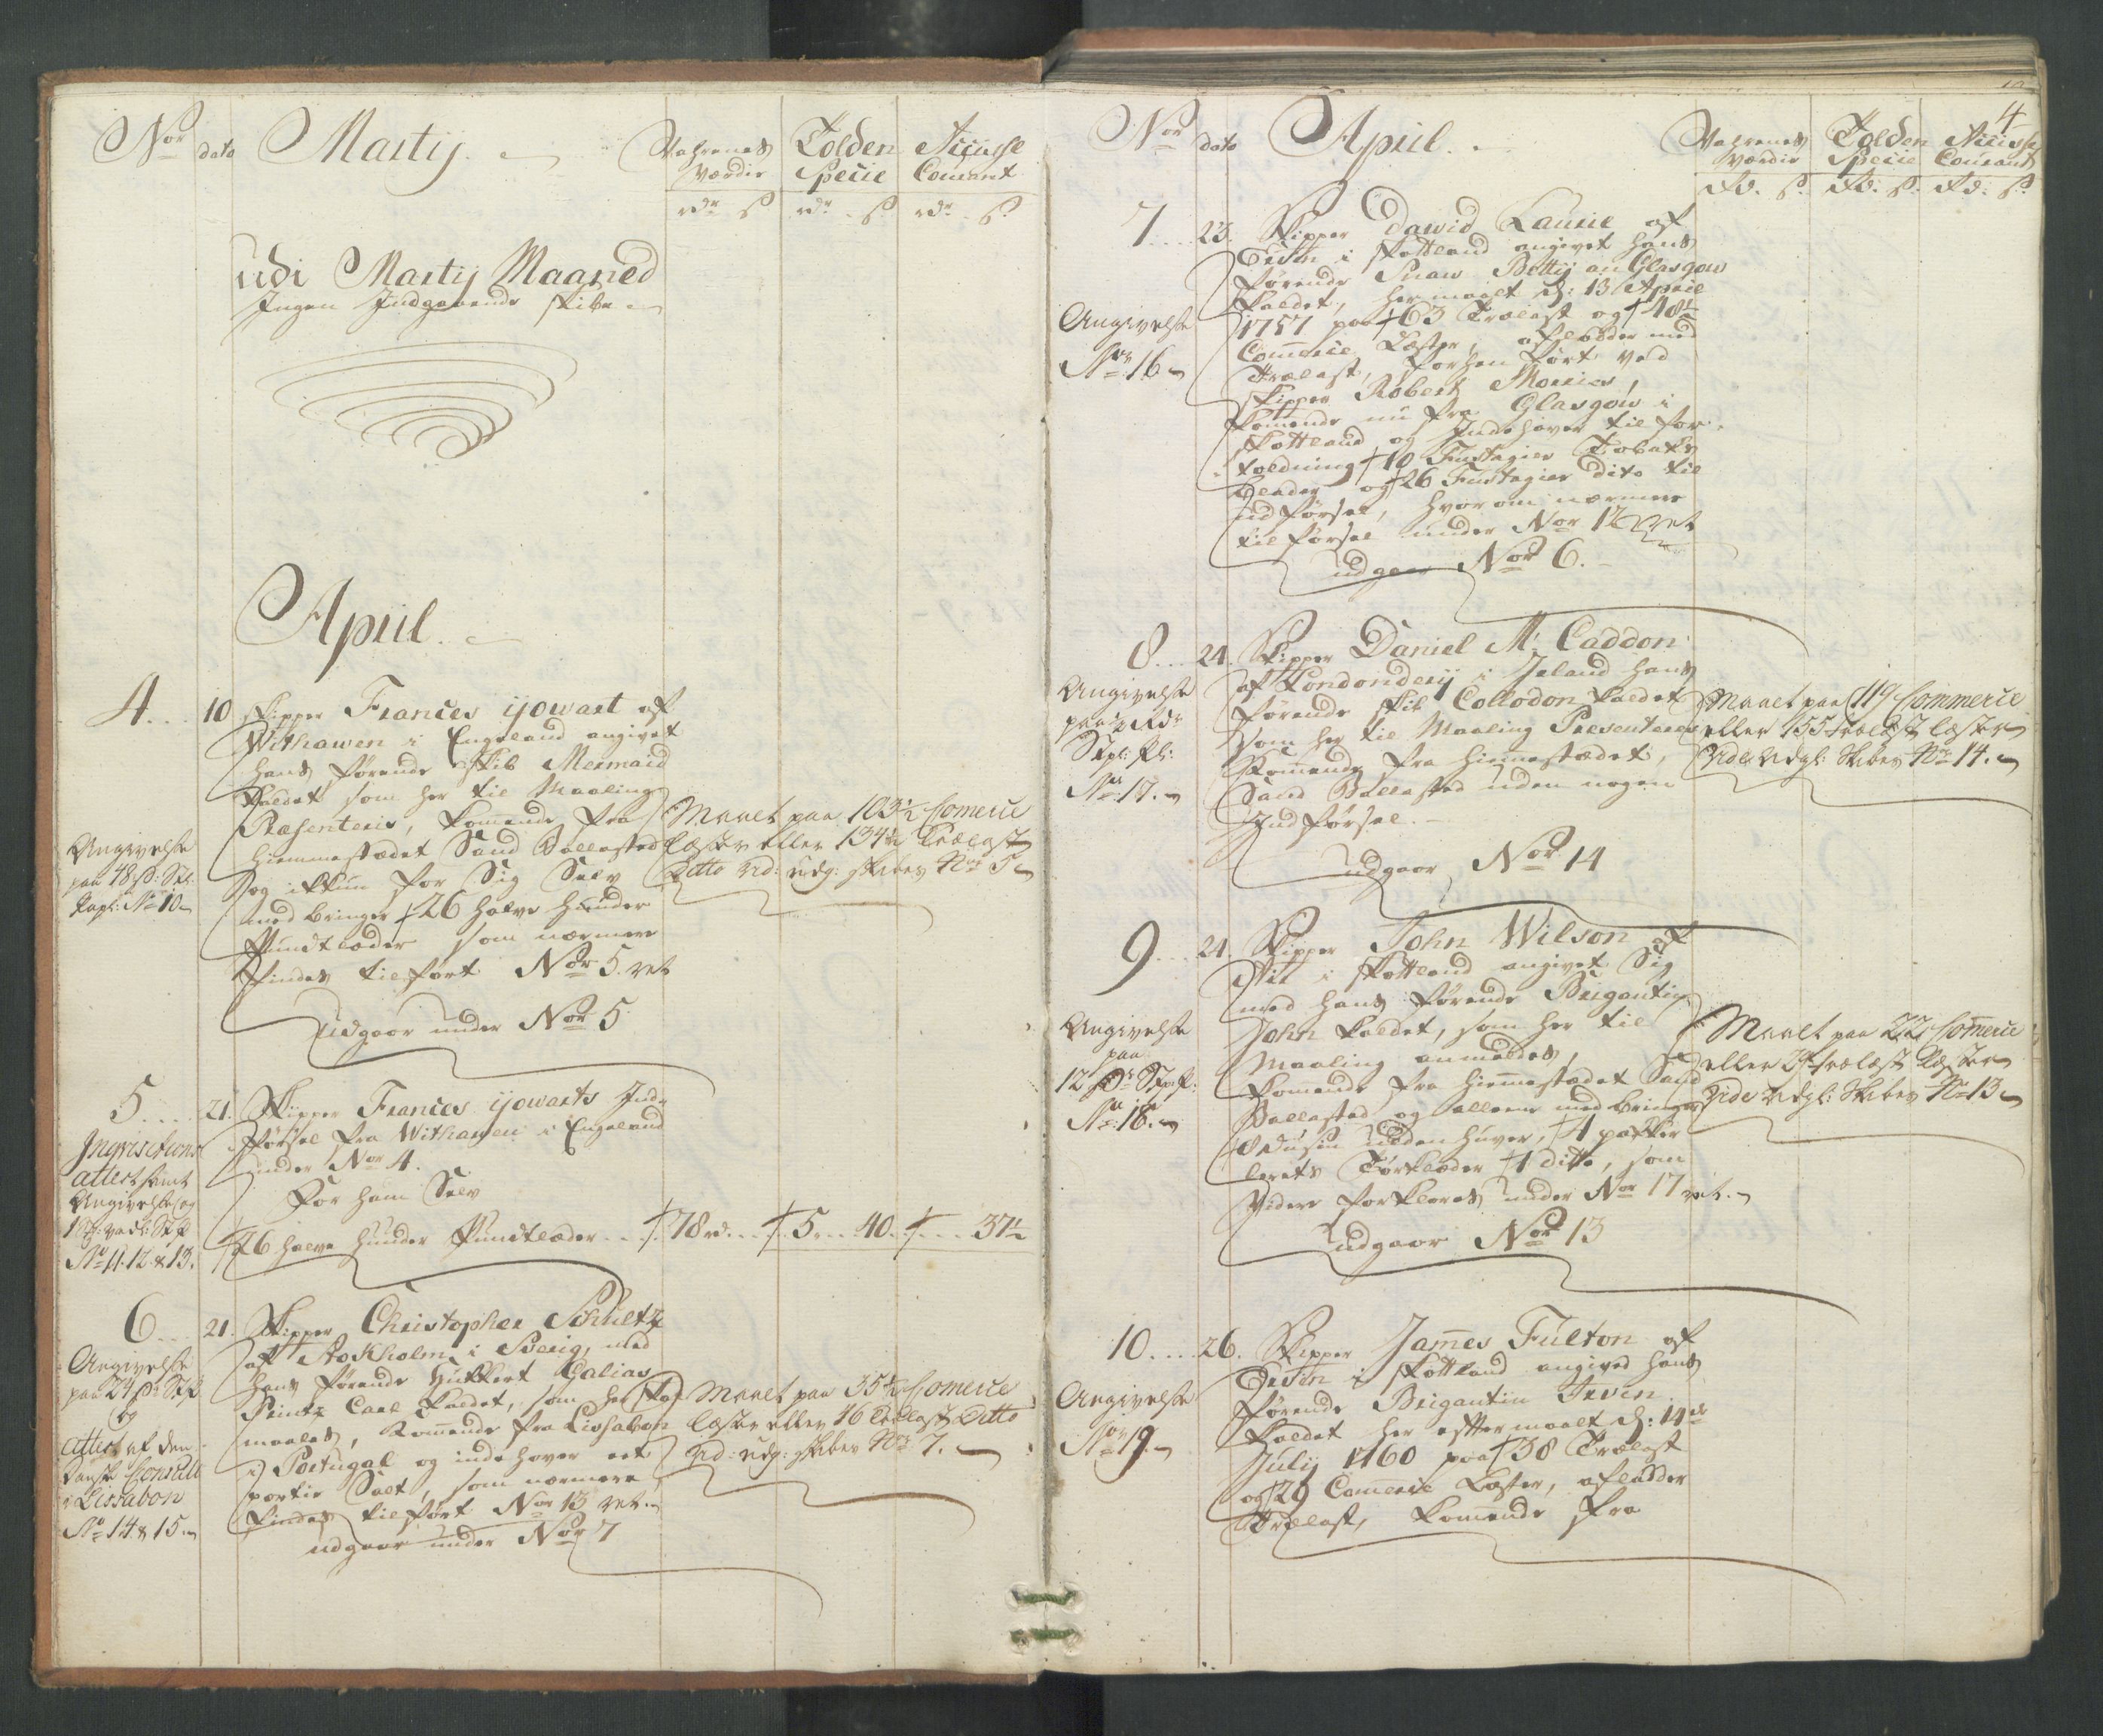 Nor dato Martij. Vahrenes Værdie Tolden Specie Acciisse Courant
rdr ß rdr ß rdr ß
udi Martij Maaned
Ingen Indgaaende Skibe
April.
4... 10 Skipper Frances ijowart af
Withawen i Engeland angivet
hans førende Skib Mermaid
kaldet som her til Maaling
Præsenteris, komende fra
hiemmestædet Sand Ballasted
og ikkun for Sig Selv
med bringer 26 halve hunder
Pundtlæder som nærmere
findes tilført Nor 5. ret
udgaar under Nor 5
Angivelse
paa 48 ß: St:
Papl: No 10
Maalt paa 103½ Comerce
læster eller 134½ Trælast
Ditto vid: udg: skibes No 5
5... 21. Skipper Frances ijowarts Ind-
førsel fra Withawen i Engeland
under Nor 4.
For ham Selv
26 halve hunder Pundtlæder... 78 rd... 5... 40... 37½
Inqvisitions
attest samt
Angivelse og
No 11. 12 & 13.
6... 21. Skipper Christopher Schultz
af Stokholm i Sverig, med
hans førende Hukkert Galias
Printz Carl kaldet, som her skal
maales, Komende fra Lissabon
i Portugal og inde hover eet
partie Salt, som nærmere
findes tilført Nor 13 ret
udgaar under Nor 7
Angivelse
paa 24 ß St:
og
attest af den
danske Consull
i Lissabon
No 14 & 15.
Maalt paa 35½ Comerce
læster eller 46 Trælast Ditto
vid: udg: skibes No 7.
4
Nor dato April. Vahrenes Værdie Tolden Specie Acciisse Courant
Rd. ß. Rd. ß. Rd. ß.
7... 23. Skipper David Laurie af
Irvin i Skottland angivet hans
førende Snau Bettij an Glasgow
kaldet, her maalt d: 13 April
1757 paa 63 Trælast og 48½
Commerce Læster, afladder med
Trælast, forhen ført ved
Skipper Robert Morries,
komende nu fra Glasgow i
Skottland og Indehaver til for-
toldning 10 Fustagier Tobaks
blader og 26 Fustagier dito til
udførsel, hvorom nærmere
tilførsel under Nor 12 ret
udgaar Nor 6.
Angivelse
No 16
8... 24. Skipper Daniel Mc Caddon
af Londonderij i Irland hans
førende Skib Collodon kaldet
som her til Maaling Præsenteres
Komende fra hiemmestædet,
Sand Ballasted uden nogen
Indførsel.
udgaar Nor 14
Angivelse
No 17.
Maalt paa 119 Commerce
eller 155 Trælast læster
vide udgl: Skibes No 14.
9... 24. Skipper John Wilson af
Air i Skottland angivet Sig
med hans førende Brigantin
John kaldet, som her til
Maaling anmældes,
komende fra hiemmestædet Sand
Ballasted og alleene med bringer
8 dusin ulden huver, 1 pakke
lerets Tørklæder 1 ditto, som
Videre forklares under Nor 17 ret.
udgaar Nor 13
Angivelse
paa
No 18.
Maalt paa 22 Comerce
eller 29 Trælast Læster
vide udgl: Skibes No 13
10... 26. Skipper James Fulton af
Irvin i Skottland angived hans
førende Brigantin Irvin
kaldet her efter maalt d: 14de
Julij 1760 paa 38 Trælast
og 29 Comerce Læster, afladder
Trælast, komende fra
Angivelse
No 19.